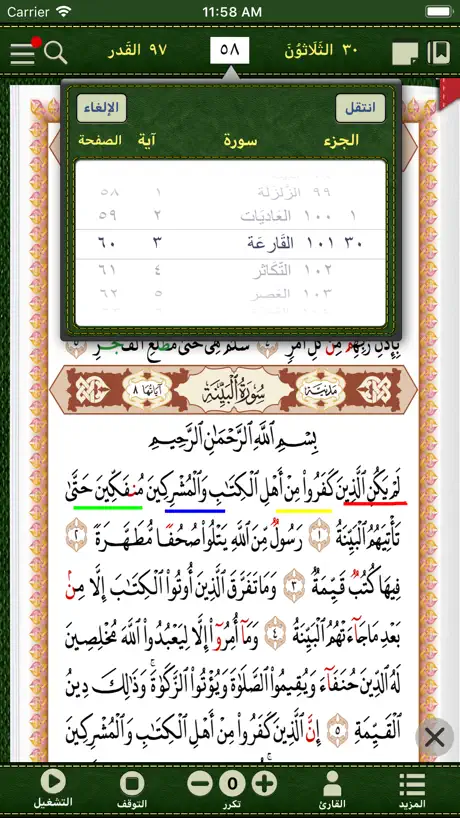 Carrier 11:58 AM
٣٠ الثَلَاثُونَ ٥٨ ٩٧ القَدر
انتقل الإلغاء
الجزء سورة آية الصفحة
٩٩ الزلزلة ١ ٥٨
١ ١٠٠ العَاديَات ٢ ٥٩
٣٠ ١٠١ القَارعَة ٣ ٦٠
١٠٢ التَّكَاثُر ٤ ٦١
١٠٣ العَصر ٥ ٦٢
بِإِذْنِ رَبِّهِم مِّن كُلِّ أَمْرٍ ٤ سَلَٰمٌ هِىَ حَتَّىٰ مَطْلَعِ ٱلْفَجْرِ ٥
مَدَنِيَّة سُورَةُ ٱلْبَيِّنَةِ آيَاتُهَا ٨
بِسْمِ ٱللَّهِ ٱلرَّحْمَٰنِ ٱلرَّحِيمِ
لَمْ يَكُنِ ٱلَّذِينَ كَفَرُوا۟ مِنْ أَهْلِ ٱلْكِتَٰبِ وَٱلْمُشْرِكِينَ مُنفَكِّينَ حَتَّىٰ
تَأْتِيَهُمُ ٱلْبَيِّنَةُ ١ رَسُولٌ مِّنَ ٱللَّهِ يَتْلُوا۟ صُحُفًا مُّطَهَّرَةً ٢
فِيهَا كُتُبٌ قَيِّمَةٌ ٣ وَمَا تَفَرَّقَ ٱلَّذِينَ أُوتُوا۟ ٱلْكِتَٰبَ إِلَّا مِنۢ
بَعْدِ مَا جَآءَتْهُمُ ٱلْبَيِّنَةُ ٤ وَمَآ أُمِرُوٓا۟ إِلَّا لِيَعْبُدُوا۟ ٱللَّهَ مُخْلِصِينَ
لَهُ ٱلدِّينَ حُنَفَآءَ وَيُقِيمُوا۟ ٱلصَّلَوٰةَ وَيُؤْتُوا۟ ٱلزَّكَوٰةَ ۚ وَذَٰلِكَ دِينُ
ٱلْقَيِّمَةِ ٥ إِنَّ ٱلَّذِينَ كَفَرُوا۟ مِنْ أَهْلِ ٱلْكِتَٰبِ وَٱلْمُشْرِكِينَ
0
المزيد القارئ تكرر التوقف التشغيل